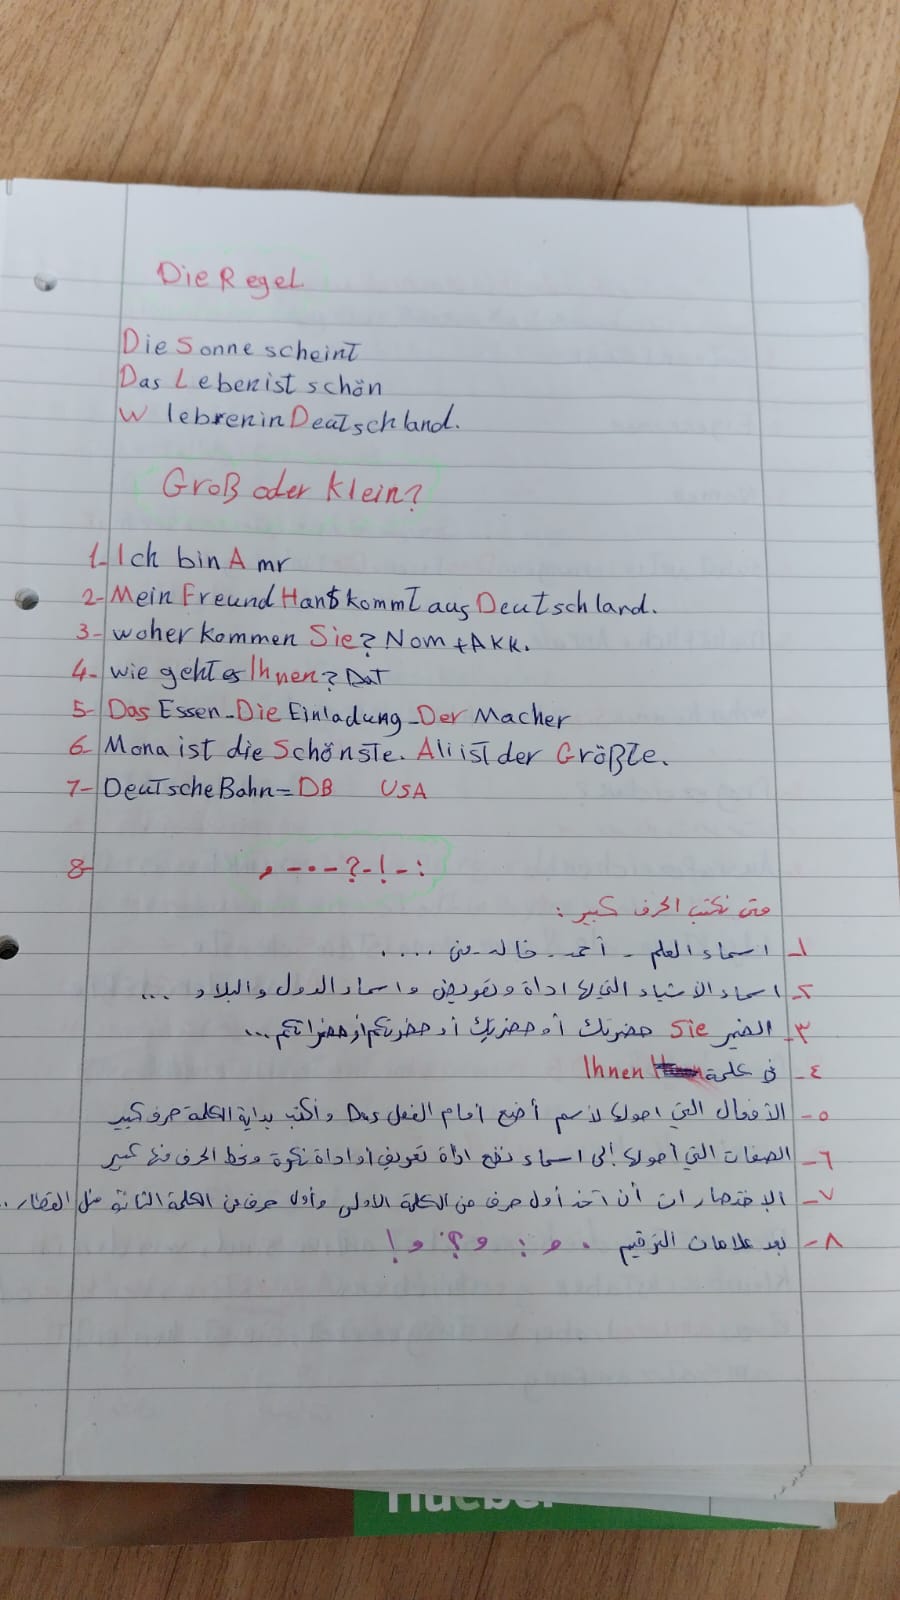 Die Regel
Die Sonne scheint
Das Leben ist schön
W lebren in Deutschland.
Groß oder Klein?
1- Ich bin Amr
2- Mein Freund Hans kommt aus Deutschland.
3- woher kommen Sie? Nom + AKK.
4- wie geht es Ihnen? Dat
5- Das Essen - Die Einladung - Der Macher
6- Mona ist die Schönste. Ali ist der Größte.
7- Deutsche Bahn = DB USA
8- , - . - ? - ! - :
متى نكتب الحرف كبير :
١- اسماء العلم - أحمد - خالد - منى ....
٢- اسماء الأشياء التي لها اداة وتعويض واسماء الدول والبلاد ...
٣- الضمير Sie حضرتك أو حضرتك أو حضرتكم أو حضراتكم ...
٤- في كلمة Ihnen
٥- الأفعال التي احولها لأسم أضع أمام الفعل Das وأكتب بداية الكلمة حرف كبير
٦- الصفات التي أحولها إلى اسماء نضع اداة تعريف أو اداة نكرة ونخط الحرف فيها كبير
٧- الإختصارات أن آخذ أول حرف من الكلمة الاولى وأول حرف من الكلمة الثانية مثل القطار ..
٨- بعد علامات الترقيم . و : و ؟ و !